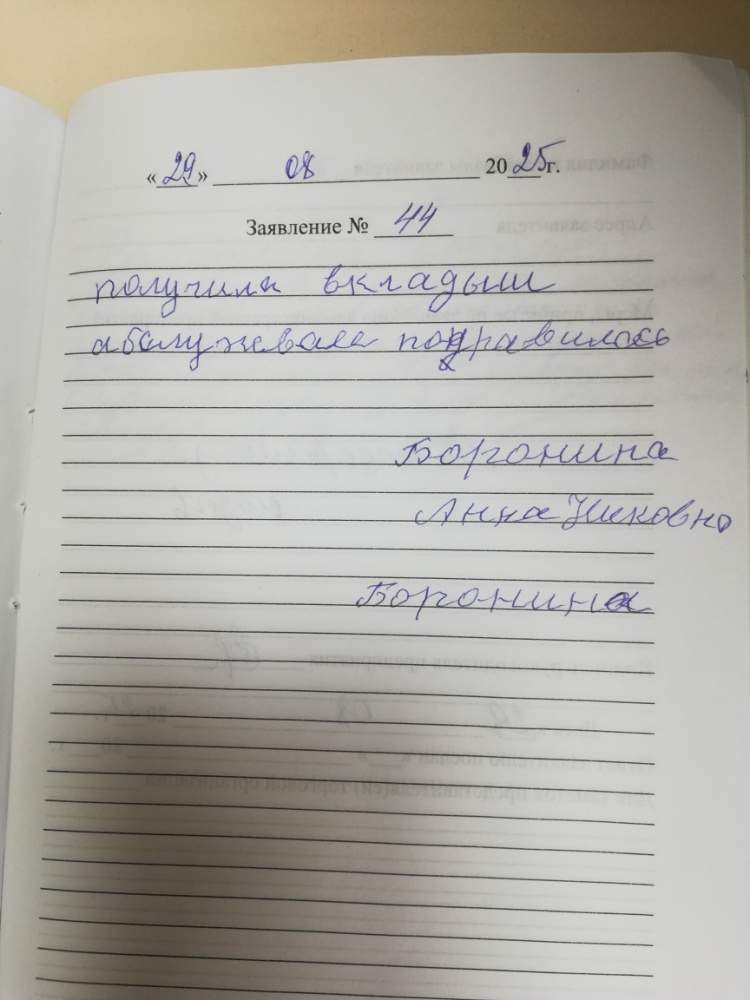 «29» 08 2025г.
Заявление № 44
получила вкладыш
абслужевала пондравилась
Боронина
Анна
Боронина